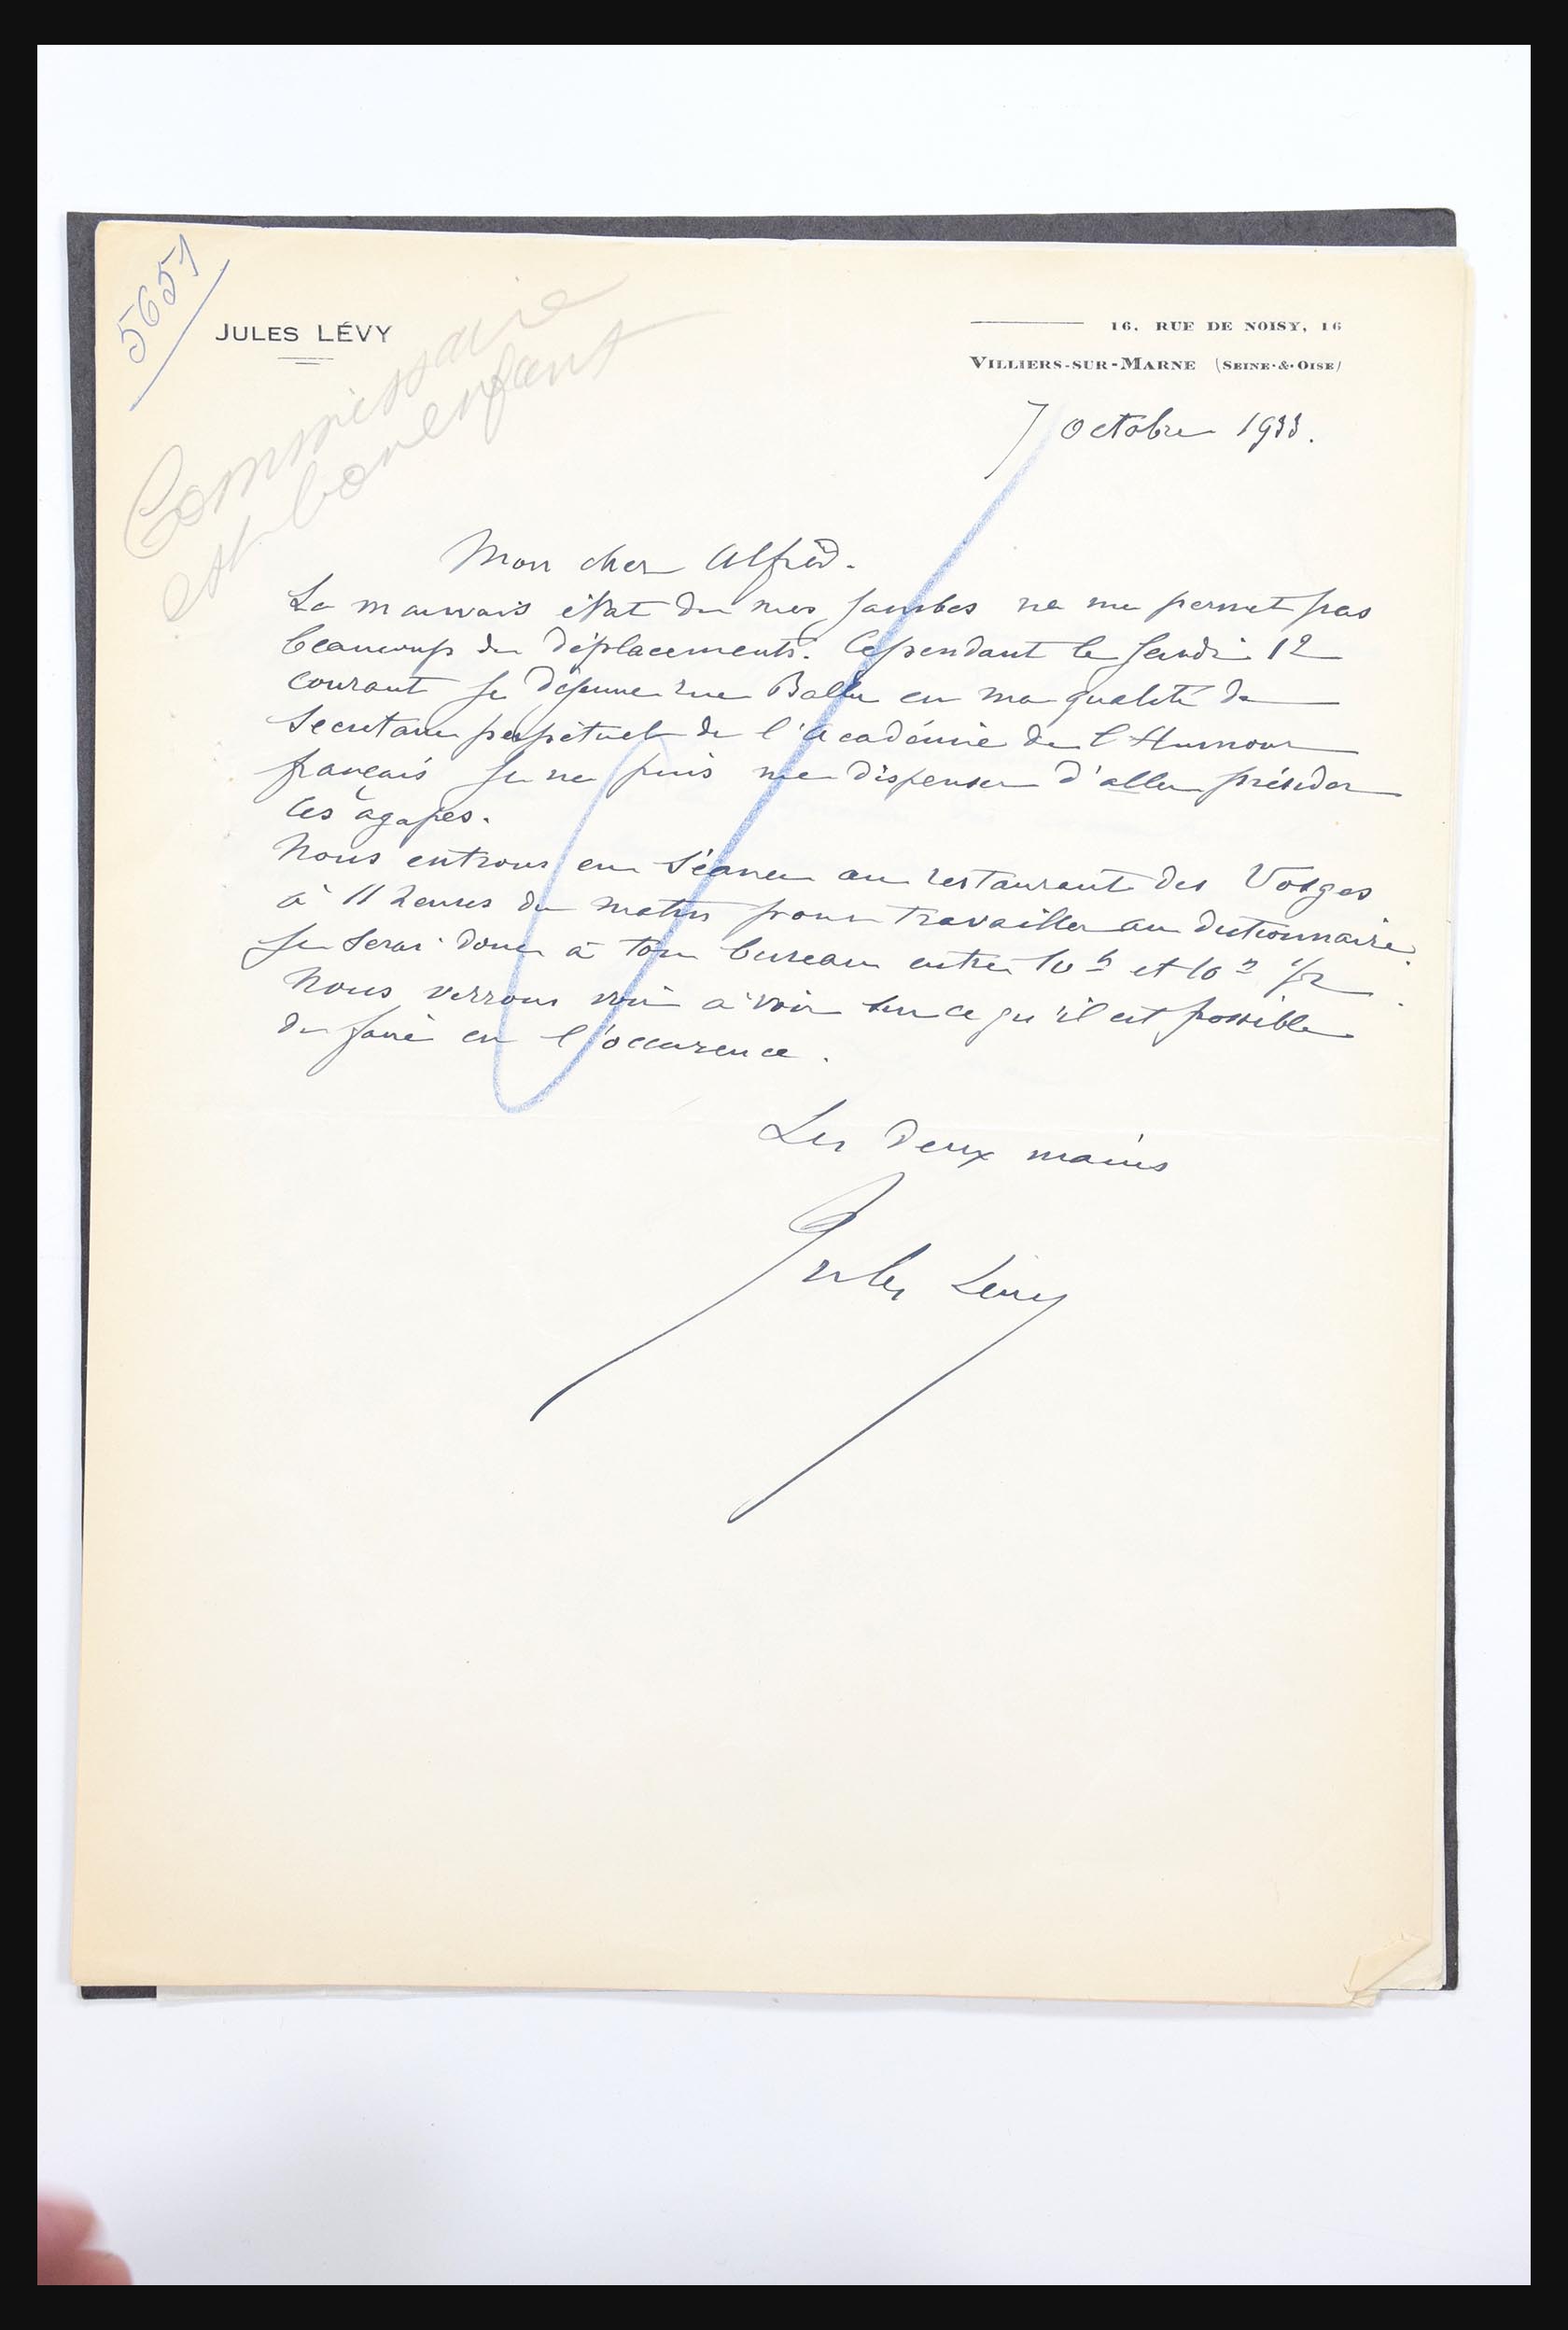 5651
JULES LÉVY
Commissaire
est bon enfant
16, RUE DE NOISY, 16
VILLIERS-SUR-MARNE (SEINE-&-OISE)
7 octobre 1933.
Mon cher Alfred.
Le mauvais état de mes jambes ne me permet pas
beaucoup de déplacements. Cependant le jeudi 12
courant je déjeune rue Ballu en ma qualité de
Secretaire perpétuel de l'Académie de l'Humour
français je ne puis me dispenser d'aller présider
ces agapes.
Nous entrons en séance au restaurant des Vosges
à 11 heures du matin pour travailler au dictionnaire.
Je serai donc à ton bureau entre 10 h et 10 h 1/2.
Nous verrons à voir sur ce qu'il est possible
de faire en l'occurence.
Les deux mains
Jules Lévy